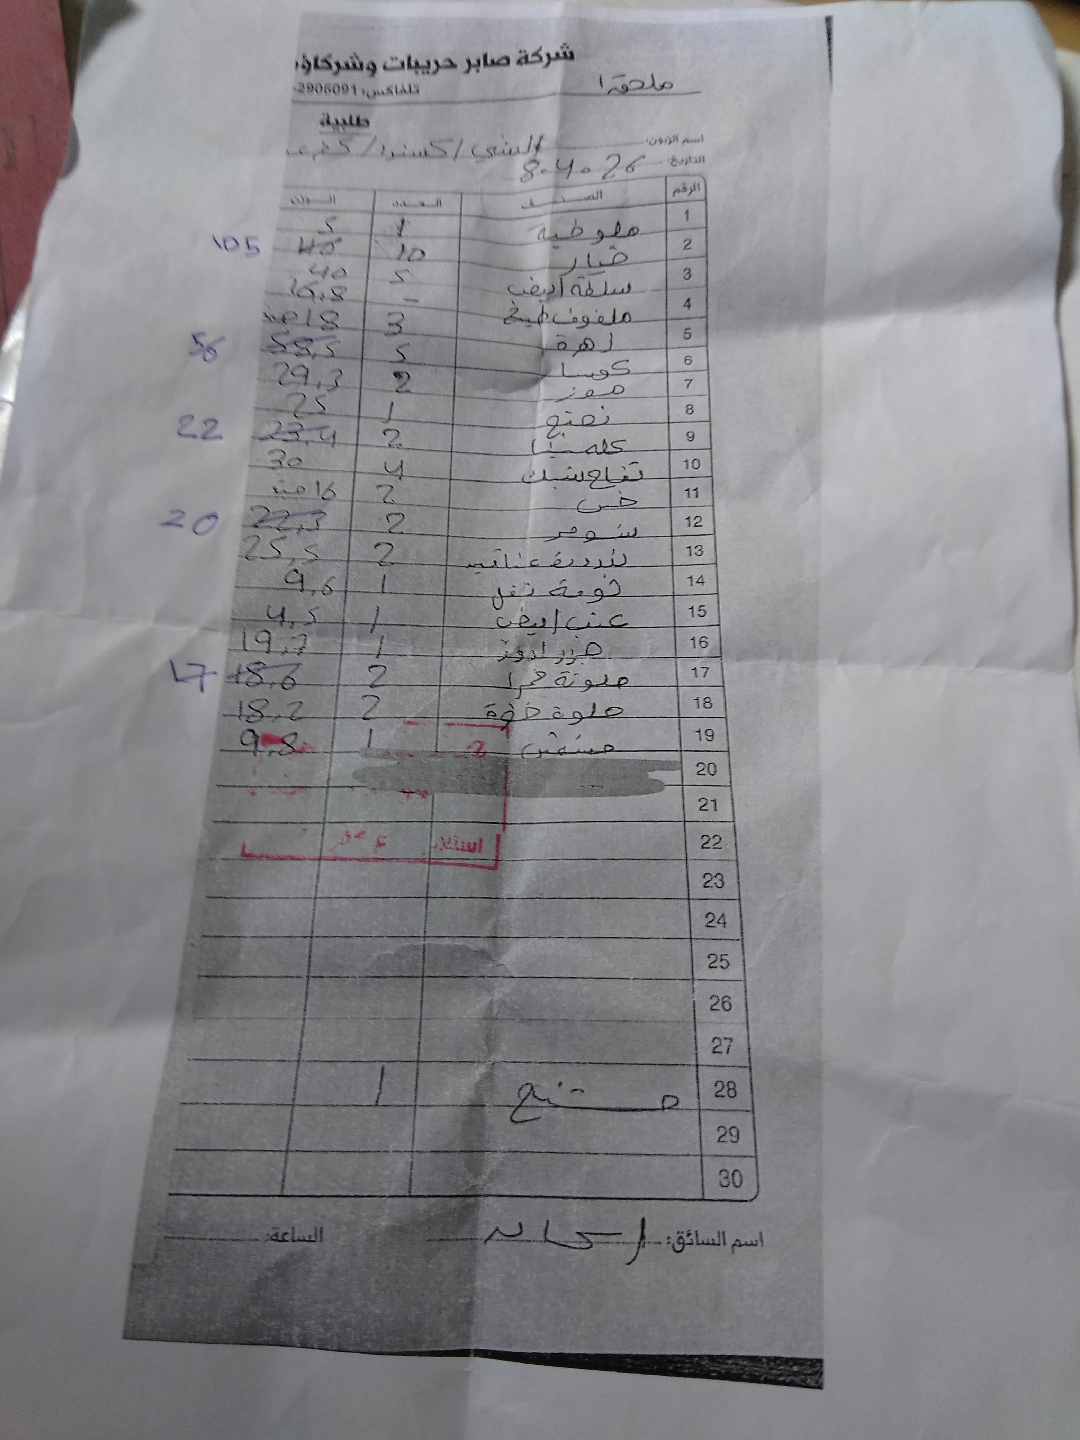 شركة صابر حريبات وشركاؤه
تلفاكس: 2905091-
ملحقة 1
طلبية
اسم الزبون: البني / كسترا /
التاريخ: 8-4-26
الرقم الصنف العدد الوزن
1 ملوخية 1 5
2 خيار 10 105
3 سلطة ابيض 5 40
4 ملفوف طبيخ - 16,8
5 زهرة 3 18 حبة
6 كوسا 5 58,5 56
7 موز 2 29,3
8 نعنع 1 25
9 كلمنتينا 2 23,4 22
10 تفاح شبك 4 30
11 خس 2 16 حبة
12 شومر 2 22,3 20
13 بندورة عناقيد 2 25,5
14 ثومة تفل 1 9,6
15 عنب ابيض 1 4,5
16 جزر 1 19,7
17 ملونة حمرا 2 18,6 17
18 حلوة 2 18,2
19 مشمش 1 9,8
20
21
22 استلام
23
24
25
26
27
28 1
29
30
اسم السائق:
الساعة: